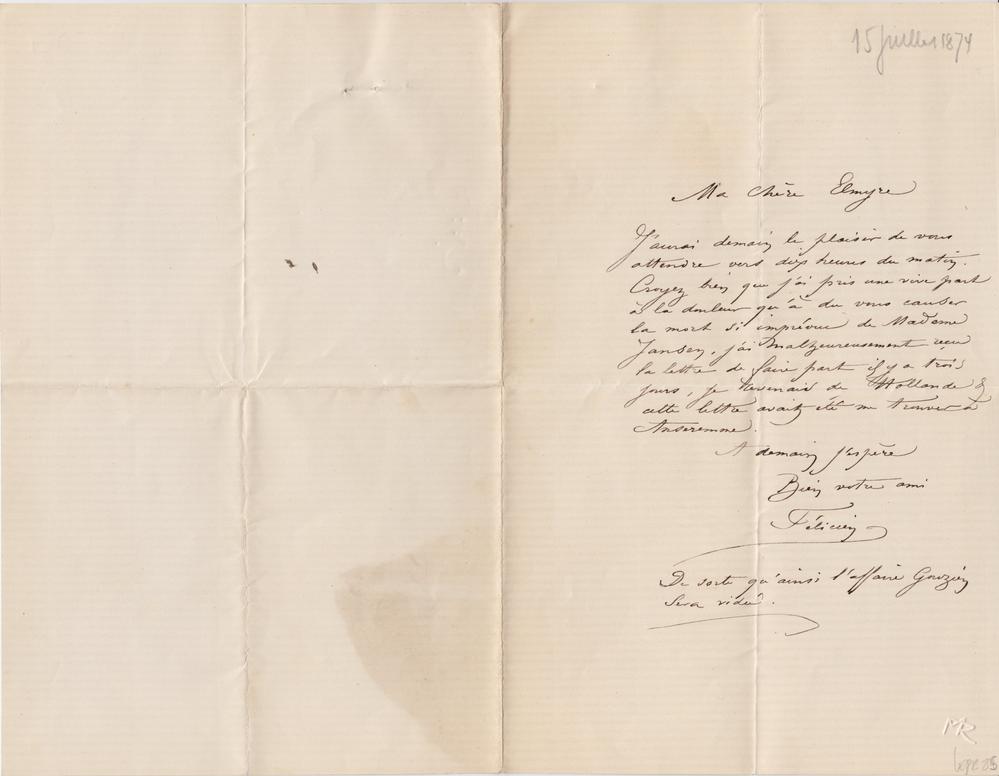 15 Juillet 1874
Ma chère Elmyre
J'aurai demain le plaisir de vous
attendre vers dix heures du matin.
Croyez bien que j'ai pris une vive part
à la douleur qu'à du vous causer
la mort si imprévue de Madame
Jansen, j'ai malheureusement reçu
la lettre de faire part il y a trois
jours, je revenais de Hollande &
cette lettre avait été me trouver à
Anseremme.
A demain j'espère
Bien votre ami
Félicien
De sorte qu'ainsi l'affaire Gouzien
sera vidée.
MR